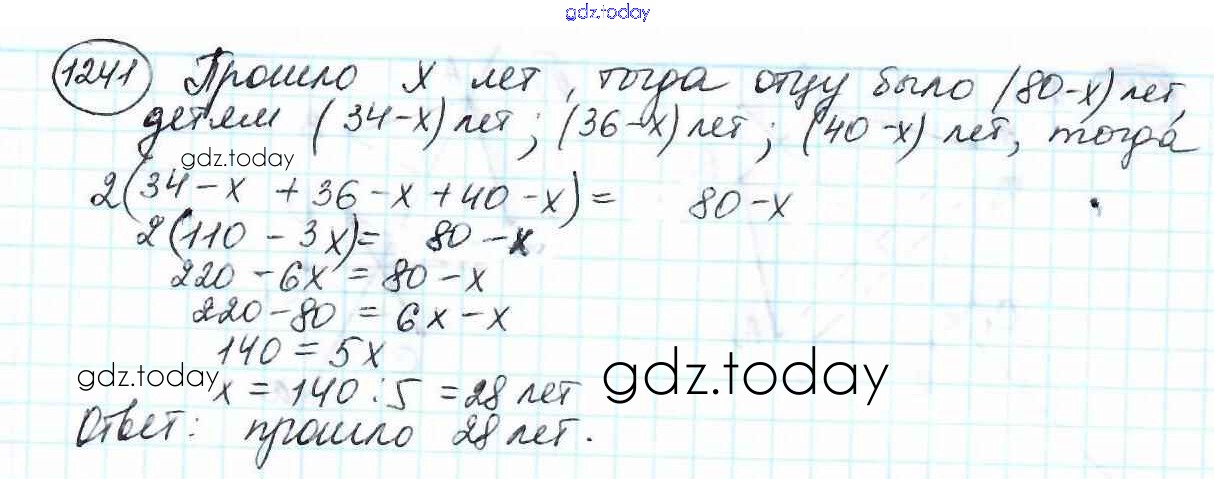 gdz.today
1241 Прошло x лет, тогда отцу было (80-x) лет,
детям (34-x) лет; (36-x) лет; (40-x) лет, тогда
gdz.today
2(34-x +36-x+40-x)= 80-x
2(110-3x)= 80-x
220-6x=80-x
220-80=6x-x
140=5x
gdz.today
gdz.today
x=140:5=28 лет
Ответ: прошло 28 лет.